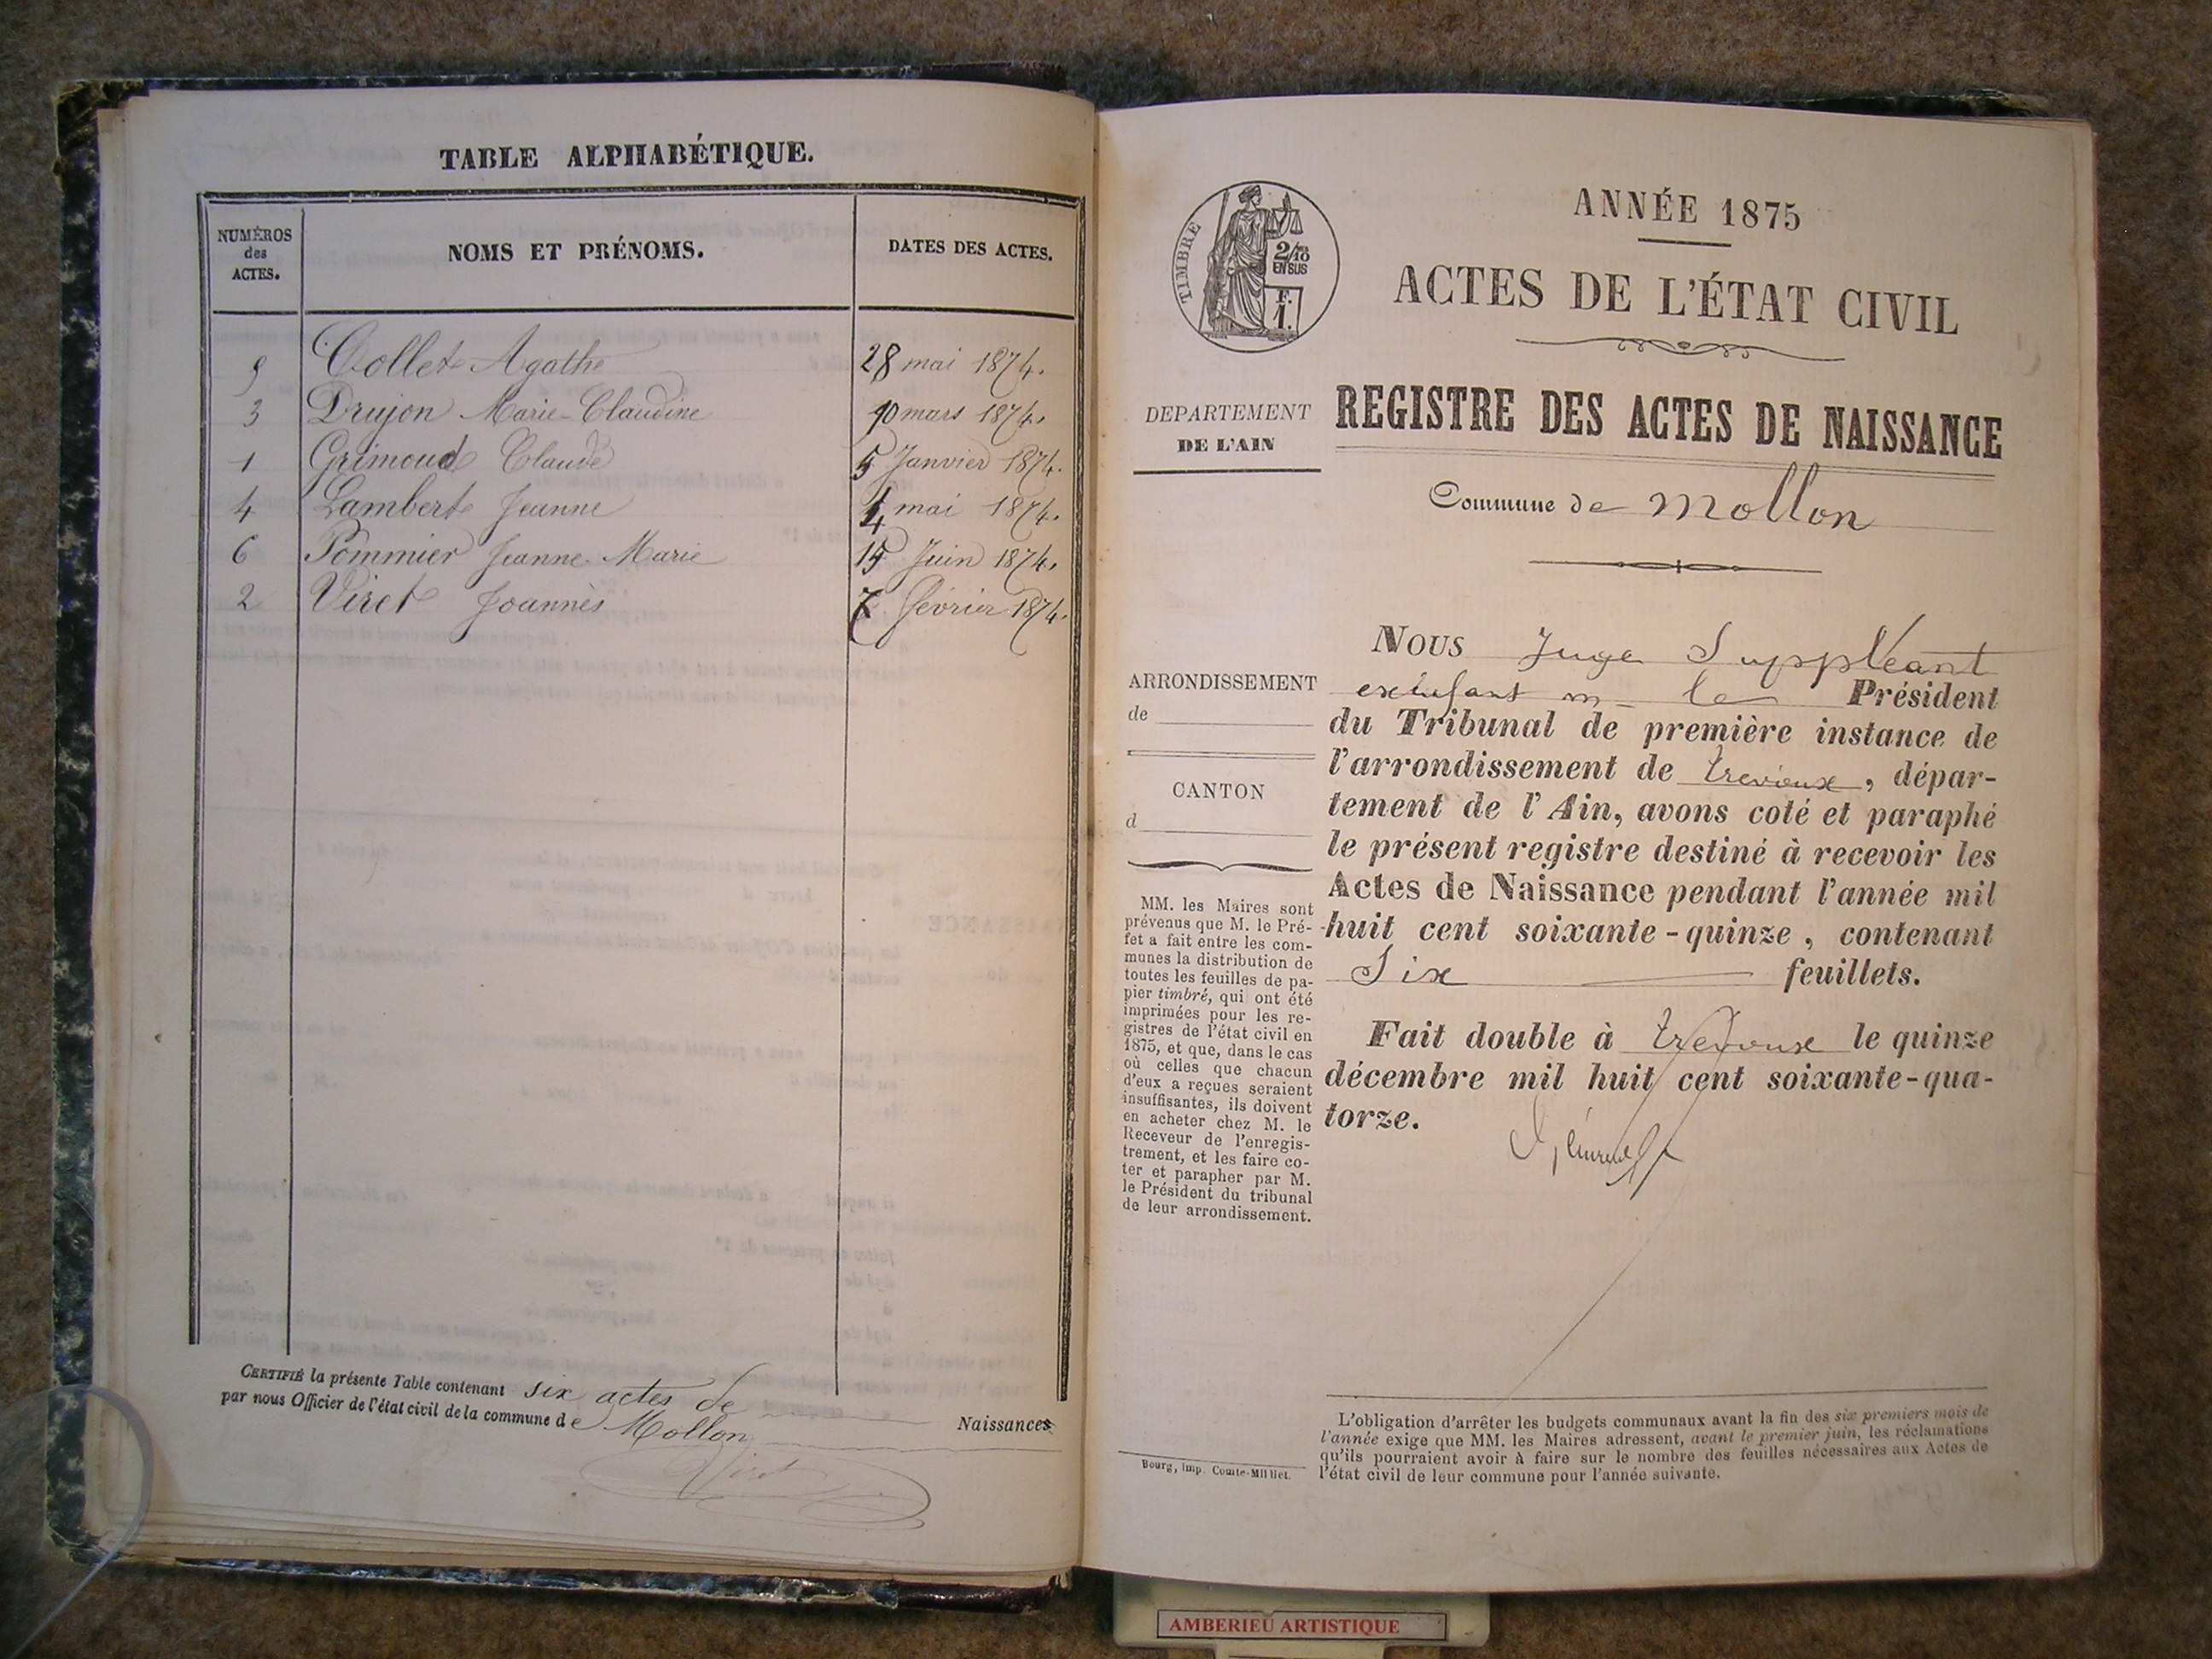 TABLE ALPHABÉTIQUE.
NUMÉROS des ACTES.
NOMS ET PRÉNOMS.
DATES DES ACTES.
Collet Agathe 28 mai 1874.
3 Drujon Marie-Claudine 10 mars 1874.
1 Grimoud Claude 5 Janvier 1874.
4 Lambert Jeanne mai 1874.
6 Pommier Jeanne-Marie 15 Juin 1874.
2 Viret Joannès 7 février 1874.
CERTIFIÉ la présente Table contenant six actes de Naissances
par nous Officier de l'état civil de la commune de Mollon
Viret
TIMBRE
2/10
EN SUS
F.
1.
ANNÉE 1875
ACTES DE L'ÉTAT CIVIL
DEPARTEMENT
DE L'AIN
REGISTRE DES ACTES DE NAISSANCE
Commune de Mollon
ARRONDISSEMENT
de
CANTON
d
MM. les Maires sont
prévenus que M. le Pré-
fet a fait entre les com-
munes la distribution de
toutes les feuilles de pa-
pier timbré, qui ont été
imprimées pour les re-
gistres de l'état civil en
1875, et que, dans le cas
où celles que chacun
d'eux a reçues seraient
insuffisantes, ils doivent
en acheter chez M. le
Receveur de l'enregis-
trement, et les faire co-
ter et parapher par M.
le Président du tribunal
de leur arrondissement.
Nous Juge Suppléant
m le Président
du Tribunal de première instance de
l'arrondissement de trevoux, dépar-
tement de l'Ain, avons coté et paraphé
le présent registre destiné à recevoir les
Actes de Naissance pendant l'année mil
huit cent soixante-quinze, contenant
Six feuillets.
Fait double à trevoux le quinze
décembre mil huit cent soixante-qua-
torze.
L'obligation d'arrêter les budgets communaux avant la fin des six premiers mois de
l'année exige que MM. les Maires adressent, avant le premier juin, les réclamations
qu'ils pourraient avoir à faire sur le nombre des feuilles nécessaires aux Actes de
l'état civil de leur commune pour l'année suivante.
Bourg, imp. Comte-Milliet.
AMBERIEU ARTISTIQUE